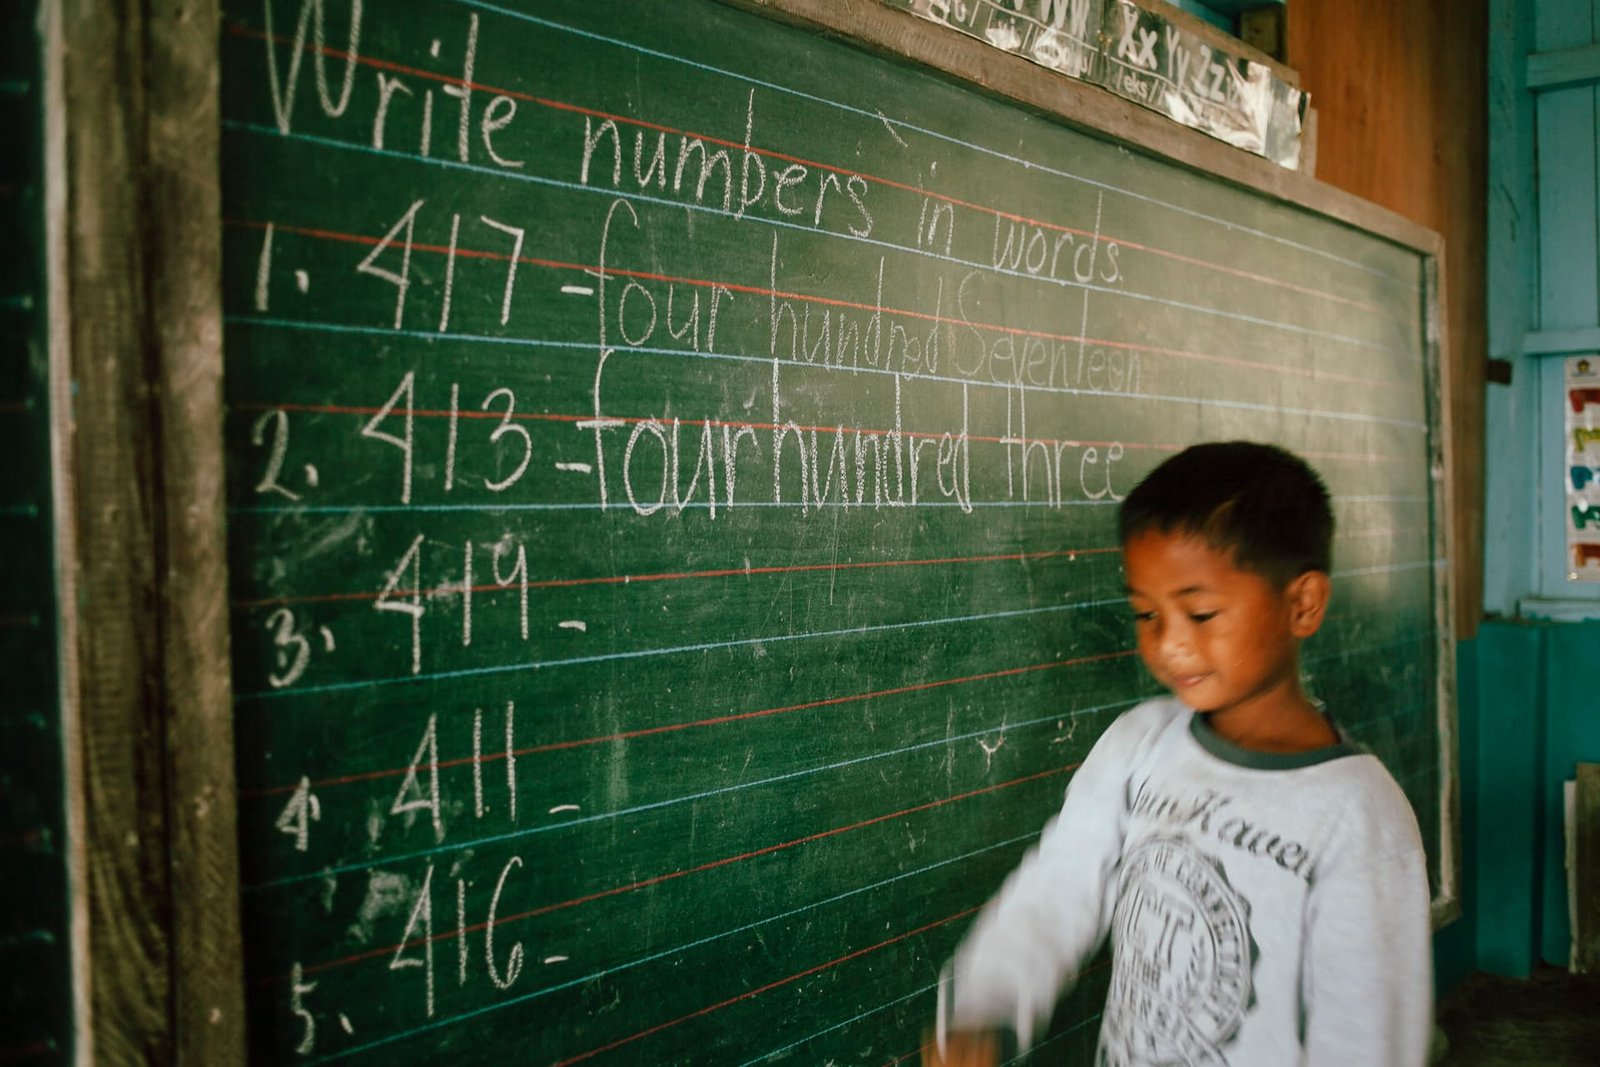 Xx Yy Zz
Write numbers in words.
1. 417 - four hundred Seventeen
2. 413 - four hundred three
3. 419 -
4. 411 -
5. 416 -
Haven
OF CONNECTICUT